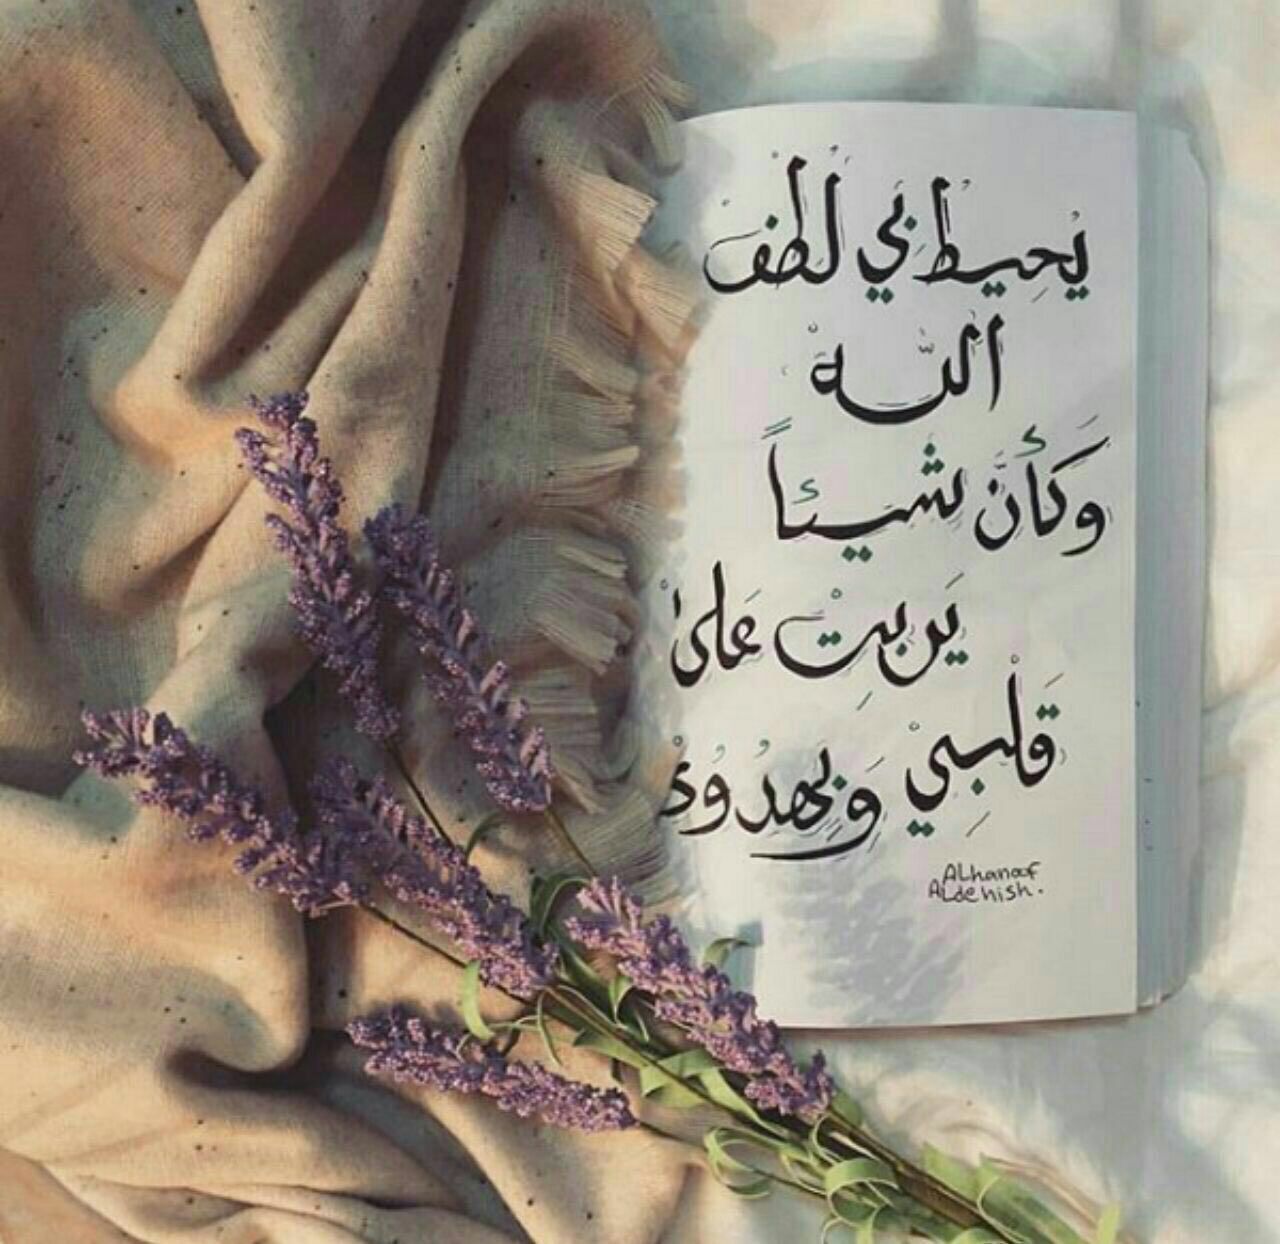 يُحِيط بَي لُطْف
اللّه
وَكَأنَّ شيئاً
يَربِتْ عَلىٰ
قَلْبِي وَبِهدُوء
ALhanoof
ALdehish.